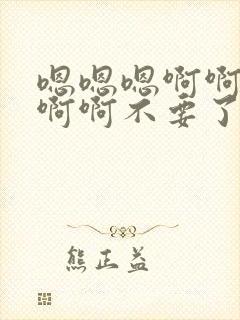 嗯嗯嗯啊啊
啊啊不要了
熊正益